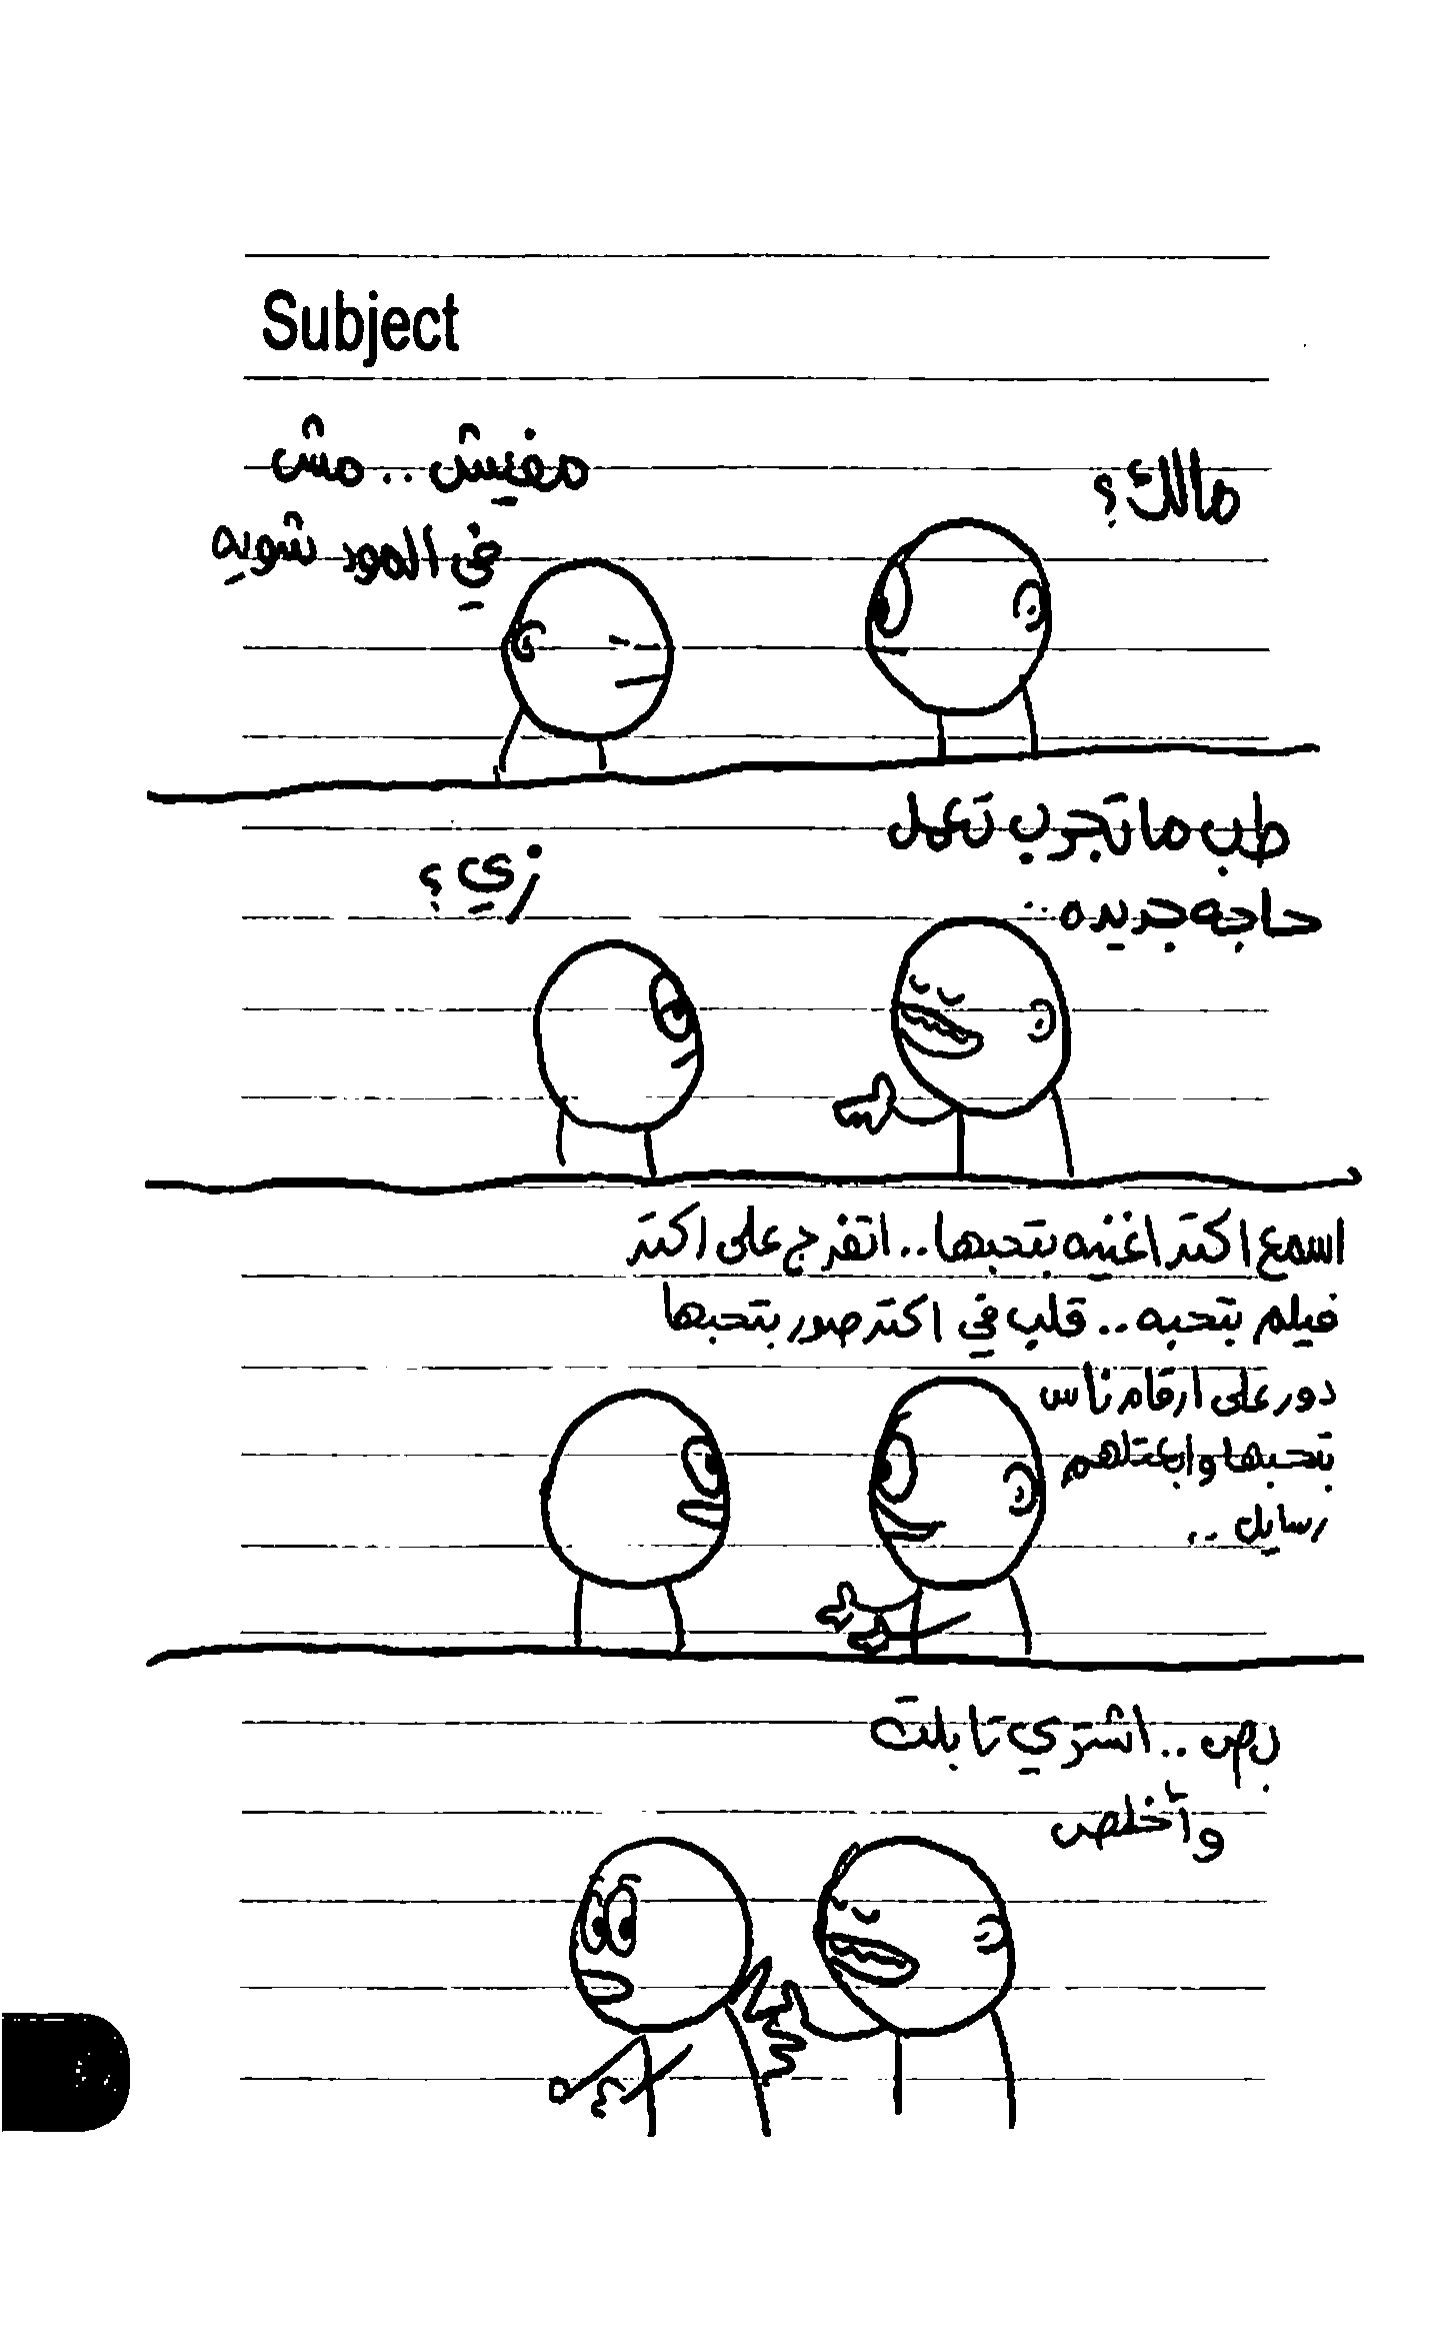 Subject
مالك؟
مفيش .. مش
في المود شويه
طب ما تجرب تعمل
حاجه جديده ..
زي؟
اسمع اكتر اغنيه بتحبها .. اتفرج على اكتر
فيلم بتحبه .. قلب في اكتر صور بتحبها
دور على ارقام ناس
بتحبها وابعتلهم
رسايل ..
بص .. اشتري تابلت
وأخلص